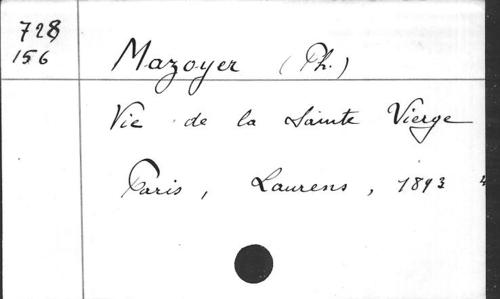 728
156
Mazoyer (Ph.)
Vie de la Sainte Vierge
Paris, Laurens, 1893 4